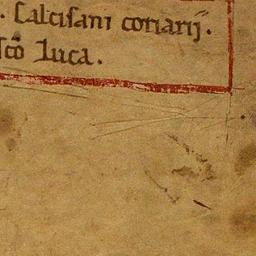 . Calcisani coriarij.
sco Luca.